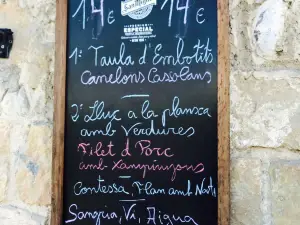 14€ 14€
ESPECIAL
1: Taula d'Embotits
Canelons Cassolans
2: Lluç a la planxa
amb Verdures
Filet d Porc
amb Xampinyons
Contessa, Flan amb Nata
Sangria, Vi, Aigua